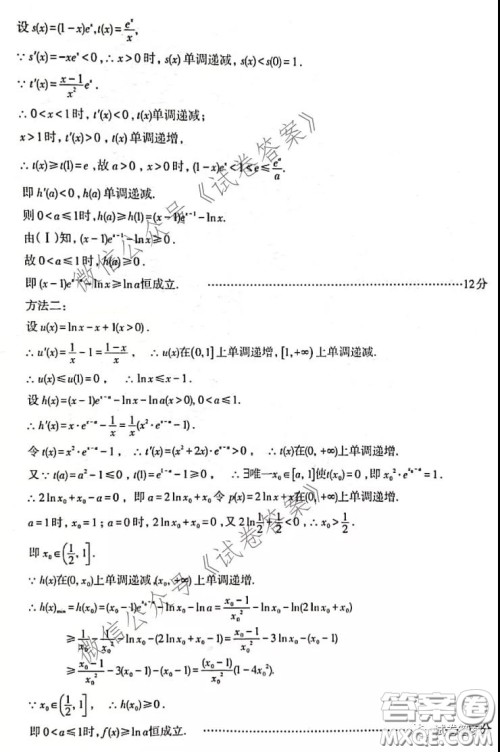 设 s(x)=(1-x)eˣ,t(x)=eˣ/x,
∵ s′(x)=-xeˣ<0,∴x>0时,s(x)单调递减,s(x)<s(0)=1.
∵ t′(x)=(x-1)/x² eˣ.
∴0<x<1时,t′(x)<0,t(x)单调递减;
x>1时,t′(x)>0,t(x)单调递增,
∴t(x)≥t(1)=e,故a>0,x>0时,(1-x)eˣ<1<e≤eᵃ/a.
即h′(a)<0,h(a)单调递减.
则0<a≤1时,h(a)≥h(1)=(x-1)eˣ⁻¹-lnx.
由(Ⅰ)知,(x-1)eˣ⁻¹-lnx≥0.
故0<a≤1时,h(a)≥0.
即(x-1)eˣ⁻ᵃ-lnx≥lna恒成立. ……12分
方法二:
设u(x)=lnx-x+1(x>0).
∴u′(x)=1/x-1=(1-x)/x, ∴u(x)在(0,1]上单调递增,[1,+∞)上单调递减.
∴u(x)≤u(1)=0, ∴lnx≤x-1.
设h(x)=(x-1)eˣ⁻ᵃ-lnx-lna(x>0),0<a≤1.
∴h′(x)=x·eˣ⁻ᵃ-1/x=1/x(x²·eˣ⁻ᵃ-1).
令t(x)=x²·eˣ⁻ᵃ-1, ∴t′(x)=(x²+2x)·eˣ⁻ᵃ>0, ∴t(x)在(0,+∞)上单调递增.
又∵t(a)=a²-1≤0,t(1)=e¹⁻ᵃ-1≥0, ∴∃唯一x₀∈[a,1]使t(x₀)=0,即x₀²·eˣ⁰⁻ᵃ=1.
∴2lnx₀+x₀-a=0,即a=2lnx₀+x₀ 令p(x)=2lnx+x在(0,+∞)上单调递增.
a=1时,x₀=1;a=0时,2lnx₀+x₀=0,又2ln1/2+1/2<0,∴x₀>1/2.
即x₀∈(1/2,1].
∵h(x)在(0,x₀)上单调递减,(x₀,+∞)上单调递增.
∴h(x)min=h(x₀)=(x₀-1)eˣ⁰⁻ᵃ-lnx₀-lna=(x₀-1)/x₀²-lnx₀-ln(2lnx₀+x₀)
≥1/x₀-1/x₀²-lnx₀-(2lnx₀+x₀-1)=(x₀-1)/x₀²-3lnx₀-x₀+1
≥(x₀-1)/x₀²-3(x₀-1)-(x₀-1)=(x₀-1)/x₀²(1-4x₀²).
∵x₀∈(1/2,1], ∴h(x)
即0<a≤1时,f(x)≥lna恒成立.
微信公众号《试卷答案》
微信公众号《试卷答案》
答案圈
MXQE.COM